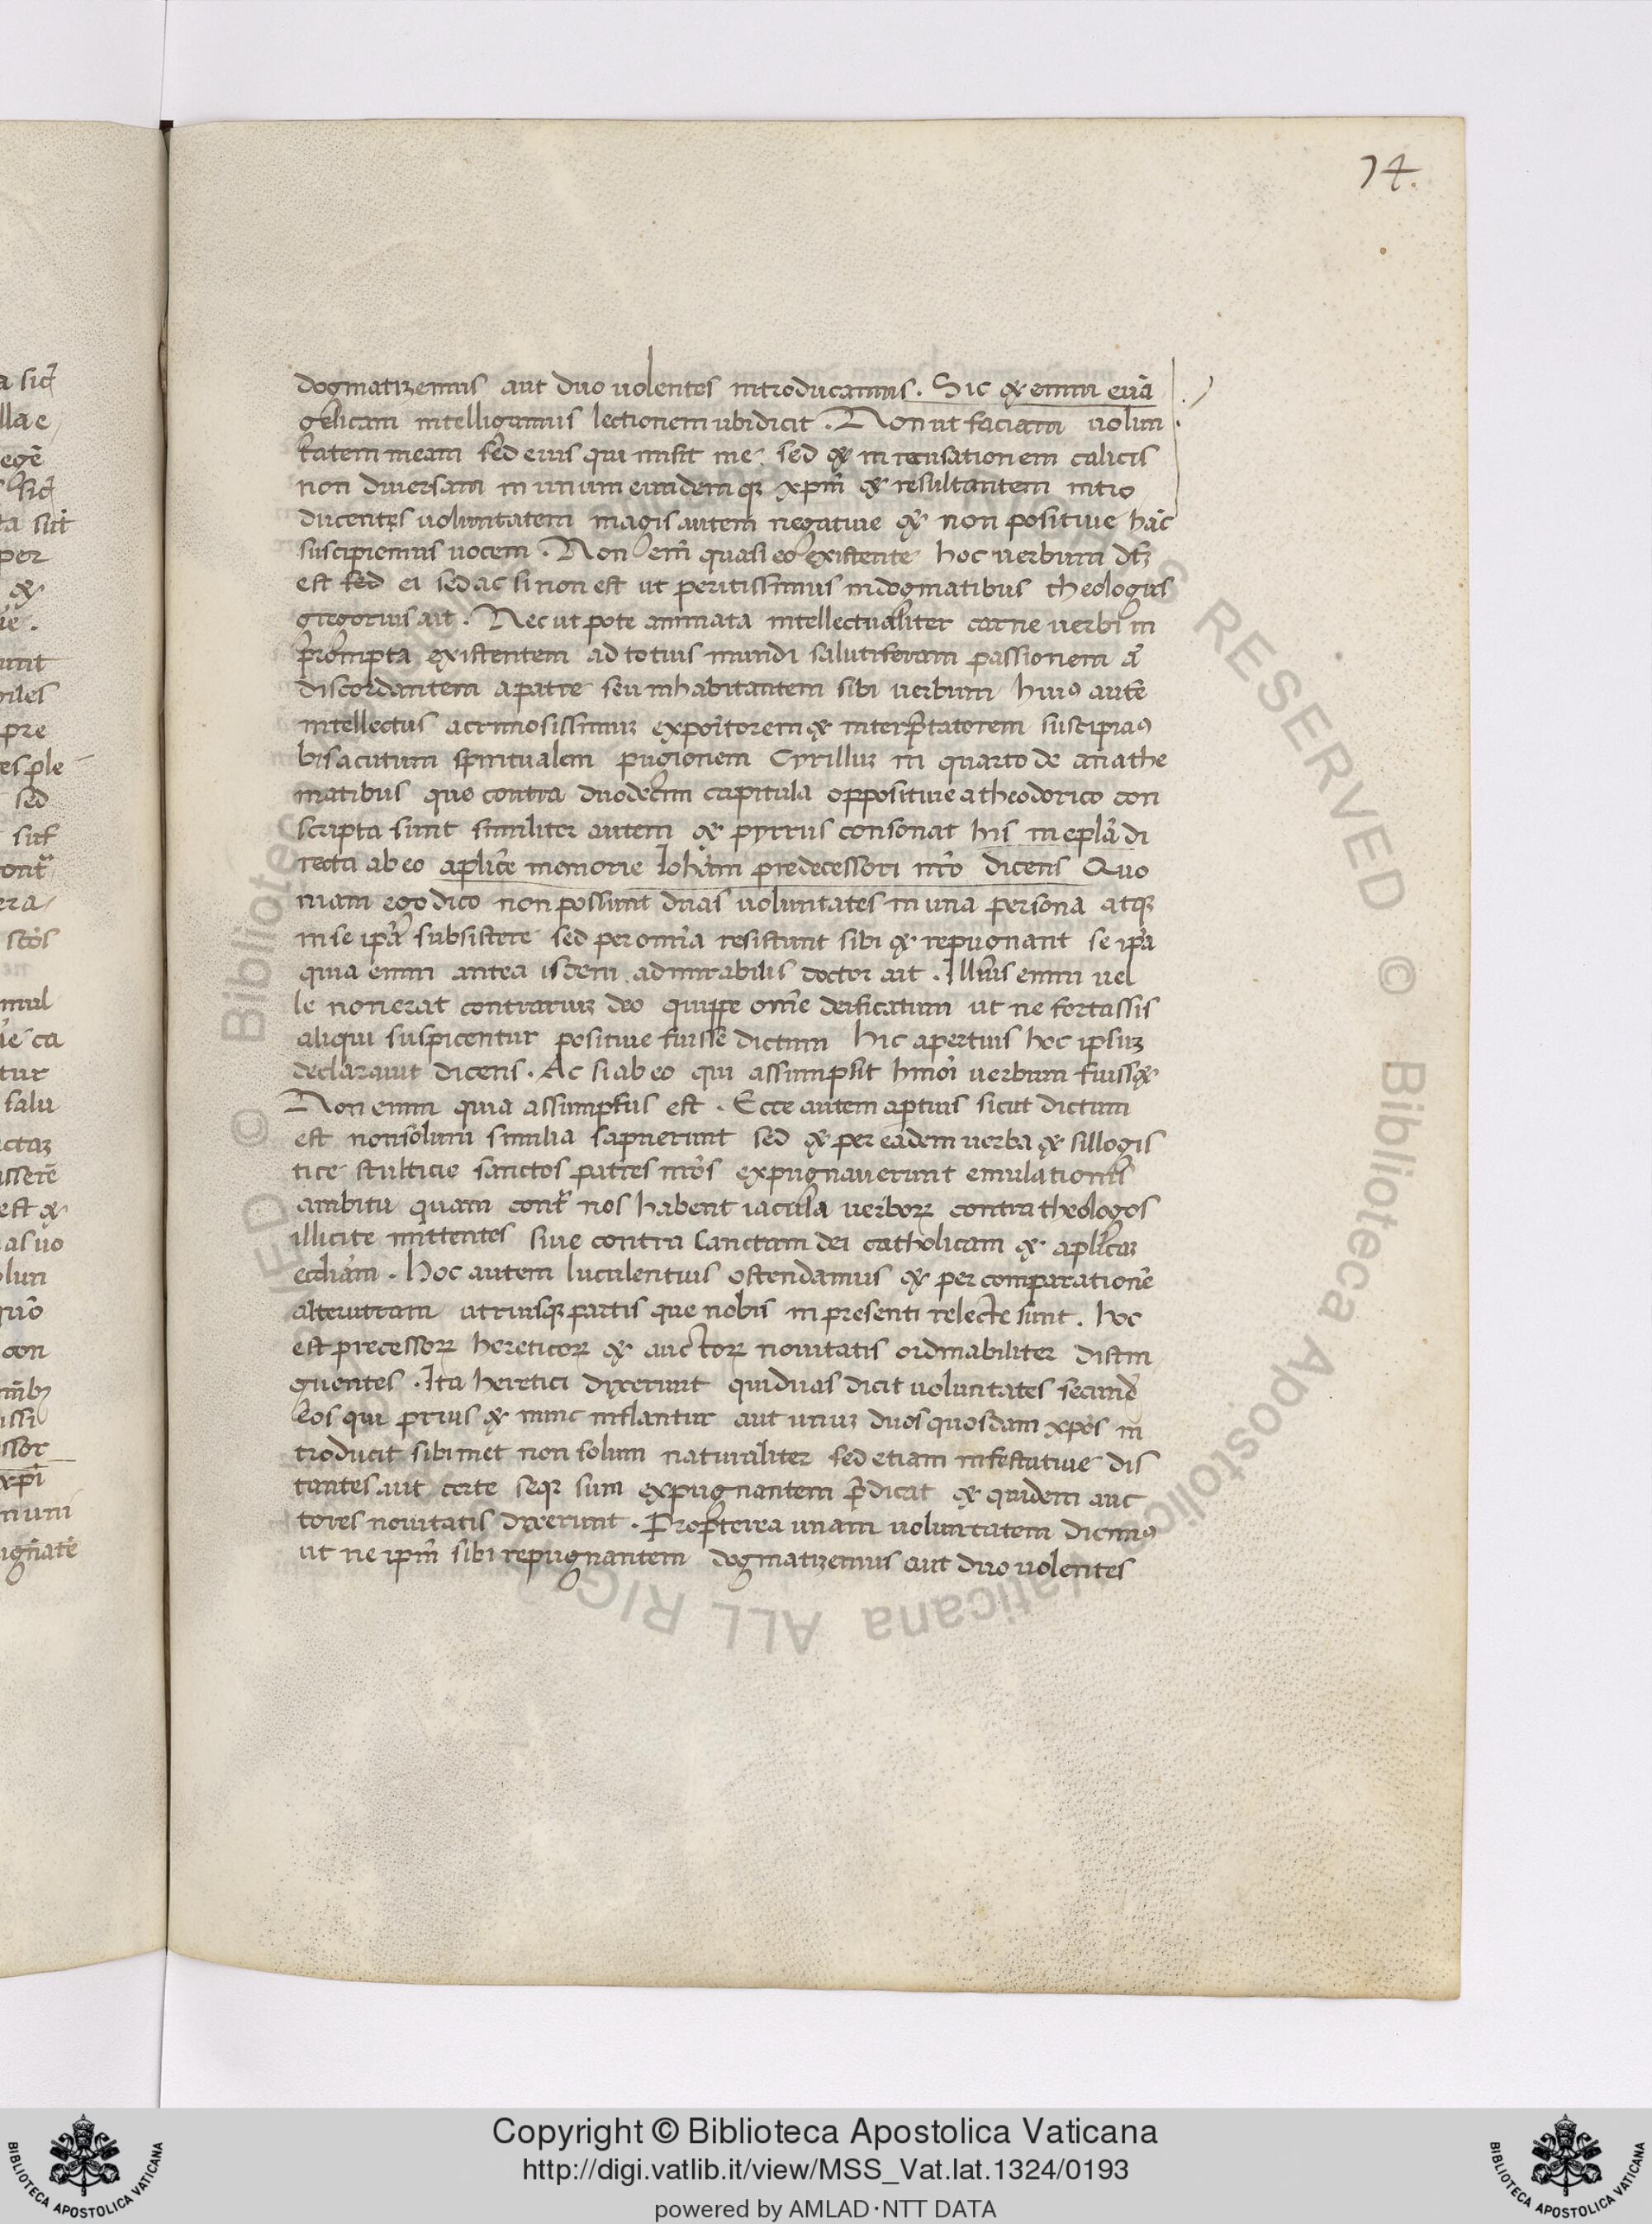 74.
dogmatizemus aut duo uolentes introducamus. Sic & enim euā
gelicam intelligamus lectionem ubi dicit. Non ut faciam uolun
tatem meam sed eius qui misit me. sed & in recusationem calicis
non diuersam in unum eundemq; xp̄m & resultantem intro
ducentes uoluntatem magis autem negatiue & non positiue hāc
suscipiemus uocem. Non em̄ quasi eo existente hoc uerbum
est sed ei sed ac si non est ut peritissimus in dogmatibus theologus
gregorius ait. Nec ut pote animata intellectualiter carne uerbi in
prompta existentem ad totius mundi salutiferam passionem
discordantem a patre seu inhabitantem sibi uerbum huiꝰ autē
intellectus acrimosissimuz expoitorem & interp̄tatorem suscipiaꝰ
bis acutum spiritualem pugionem Cyrilluz in quarto de anathe
matibus que contra duodecim capitula oppositiue a theodorico con
scripta sunt similiter autem & pyrrus consonat his in ep̄la di
recta ab eo ap̄lice memorie Ioh̄am predecessori nr̄o dicens Quo
niam ego dico non possunt duas uoluntates in una persona atq;
in se ip̄a subsistere sed per omīa resistunt sibi & repugnant se ip̄a
quia enim antea isdem admirabilis doctor ait. Illius enim uel
le non erat contrariuz deo quippe om̄e deificatum ut ne fortassis
aliqui suspicentur positiue fuisse dictum hic apertius hoc ipsuz
declarauit dicens. Ac si ab eo qui assumpsit hm̄oi uerbum fuiss&
Non enim quia assumptus est. Ecce autem aptius sicut dictum
est non solum similia sapuerunt sed & per eadem uerba & sillogis
tice stulticie sanctos patres nr̄os expugnauerunt emulationis
ambitu quam cont nos habent iacula uerboꝝ contra theologos
illicite mittentes siue contra sanctam dei catholicam & ap̄licaz
eccliam. Hoc autem luculentius ostendamus & per comparationē
alterutram utriusq; partis que nobis in presenti relecte sunt. hoc
est precessoꝝ hereticoꝝ & auctoꝝ nouitatis ordinabiliter distin
guentes. Ita heretici dixerunt qui duas dicit uoluntates secund
eos qui prius & nunc inflantur aut unuz duos quosdam xp̄os in
troducit sibimet non solum naturaliter sed etiam infestatiue dis
tantes aut certe seq; sum expugnantem p̄dicat & quidem auc
tores nouitatis dixerunt. Propterea unam uoluntatem dicimꝰ
ut ne ip̄m sibi repugnantem dogmatizemus aut duo uolentes
Copyright © Biblioteca Apostolica Vaticana
http://digi.vatlib.it/view/MSS_Vat.lat.1324/0193
powered by AMLAD·NTT DATA